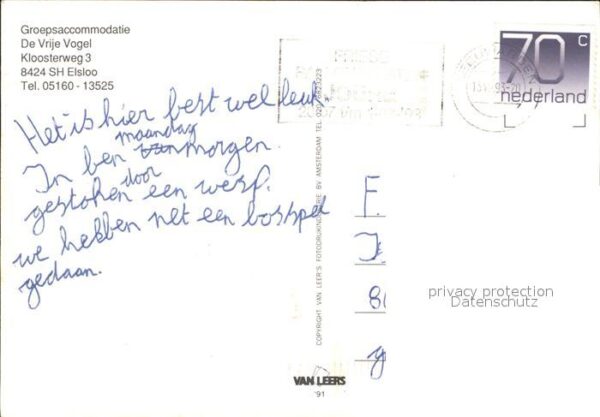 Groepsaccommodatie
De Vrije Vogel
Kloosterweg 3
8424 SH Elsloo
Tel. 05160 - 13525
70 c
nederland
Het is hier best wel leuk.
maandag
In ben morgen.
door
gestoken een wesp.
we hebben net een bosspel
gedaan.
F.
J
8
g
privacy protection
Datenschutz
COPYRIGHT VAN LEER'S FOTODRUKINDUSTRIE BV AMSTERDAM TEL.
VAN LEERS
'91